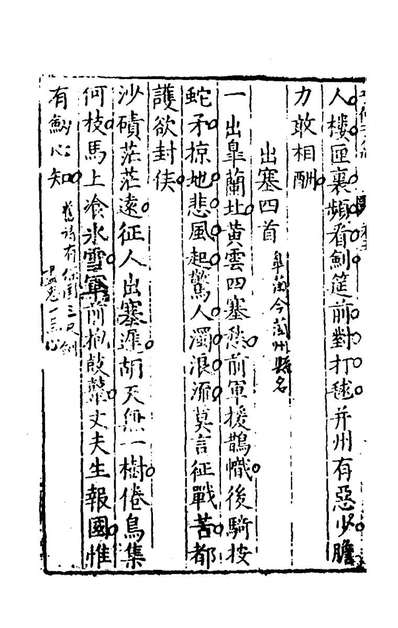 人樓匣裏頻看劍筵前對打毬并州有惡少膽
力敢相酬
出塞四首 皐蘭今蘭州縣名
一出臯蘭北黃雲四塞愁前軍援鵲幟後騎按
蛇矛掠地悲風起驚人濁浪流莫言征戰苦都
護欲封侯
沙磧茫茫遠征人出塞遲胡天無一樹倦鳥集
何枝馬上飡氷雪軍前抱鼓鼙丈夫生報國惟
有劍心知 舊詩有 三尺劍
一寸心